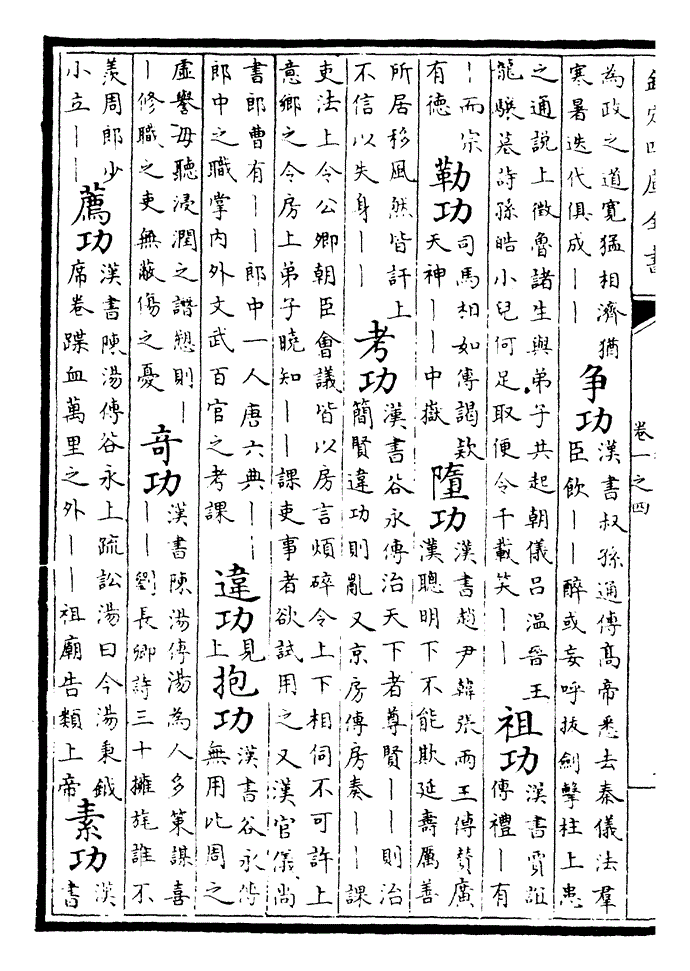 欽定四庫全書
卷一之四
為政之道寬猛相濟猶
寒暑迭代俱成丨丨
争功
漢書叔孫通傳高帝悉去秦儀法羣
臣飲丨丨醉或妄呼拔劍擊柱上患
之通說上徵魯諸生與弟子共起朝儀呂温晉王
龍驤墓詩孫皓小兒何足取便令千載笑丨丨
祖功
漢書賈誼
傳禮丨有
丨而宗
有德
勒功
司馬相如傳謁款
天神丨丨中嶽
墮功
漢書趙尹韓張兩王傳賛廣
漢聰明下不能欺延壽厲善
所居移風然皆訐上
不信以失身丨丨
考功
漢書谷永傳治天下者尊賢丨丨則治
簡賢違功則亂又京房傳房奏丨丨課
吏法上令公卿朝臣會議皆以房言煩碎令上下相伺不可許上
意鄉之令房上弟子曉知丨丨課吏事者欲試用之又漢官儀尚
書郎曹有丨丨郎中一人唐六典丨丨
郎中之職掌内外文武百官之考課
違功
見
上
抱功
漢書谷永傳
無用比周之
虛譽毋聽浸潤之譖愬則丨
丨修職之吏無蔽傷之憂
奇功
漢書陳湯傳湯為人多策謀喜
丨丨劉長卿詩三十擁旄誰不
羨周郎少
小立丨丨
薦功
漢書陳湯傳谷永上疏訟湯曰今湯秉鉞
席卷蹀血萬里之外丨丨祖廟告類上帝
素功
漢
書